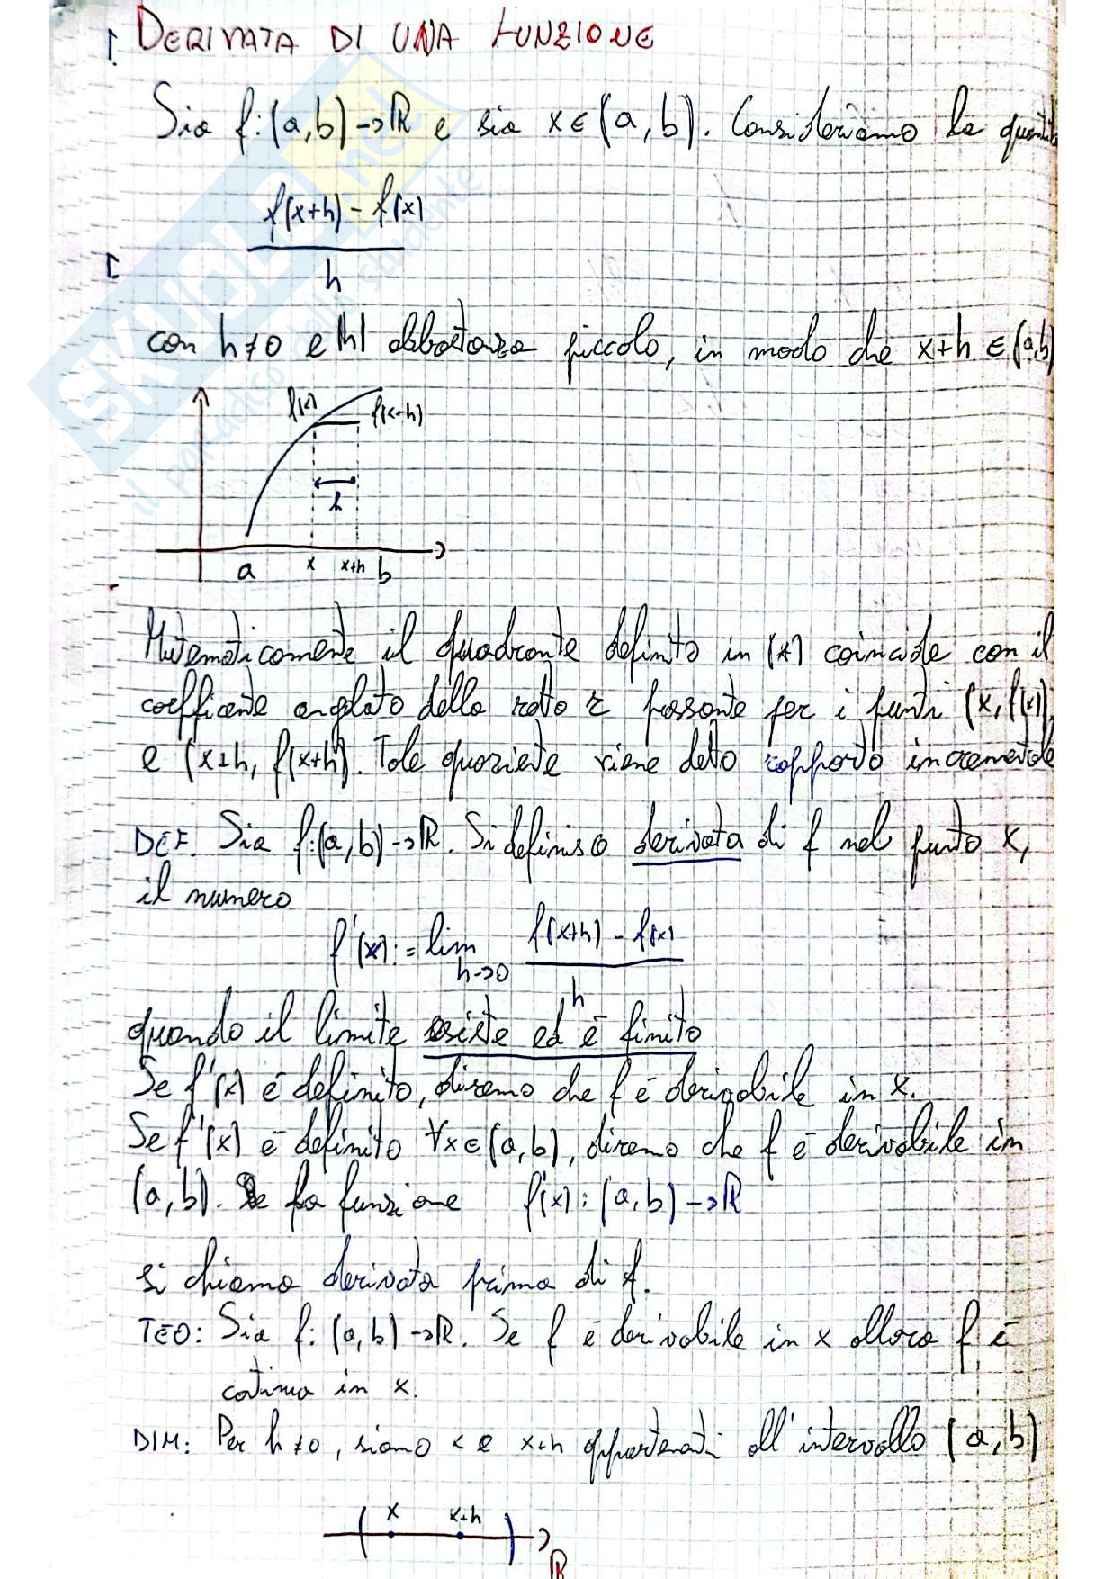 DERIVATA DI UNA FUNZIONE
Sia f:(a,b)→ℝ e sia x∈(a,b). Consideriamo la quantità
f(x+h)-f(x)
h
con h≠0 e |h| abbastanza piccolo, in modo che x+h∈(a,b)
f(x) f(x+h)
h
a x x+h b
Matematicamente il quadrante definito in (*) coincide con il
coefficiente angolato della retta r passante per i punti (x, f(x))
e (x+h, f(x+h)). Tale quoziente viene detto rapporto incrementale
DEF. Sia f:(a,b)→ℝ. Si definisce derivata di f nel punto x,
il numero
f'(x):=lim f(x+h)-f(x)
h→0 h
quando il limite esiste ed è finito
Se f'(x) è definito, diremo che f è derivabile in x.
Se f'(x) è definito ∀x∈(a,b), diremo che f è derivabile in
(a,b). la funzione f'(x):(a,b)→ℝ
si chiama derivata prima di f.
TEO: Sia f:(a,b)→ℝ. Se f è derivabile in x allora f è
continua in x.
DIM: Per h≠0, siano x e x+h appartenenti all'intervallo (a,b)
x x+h
ℝ
SKUOLA.net
il paradiso dello studente